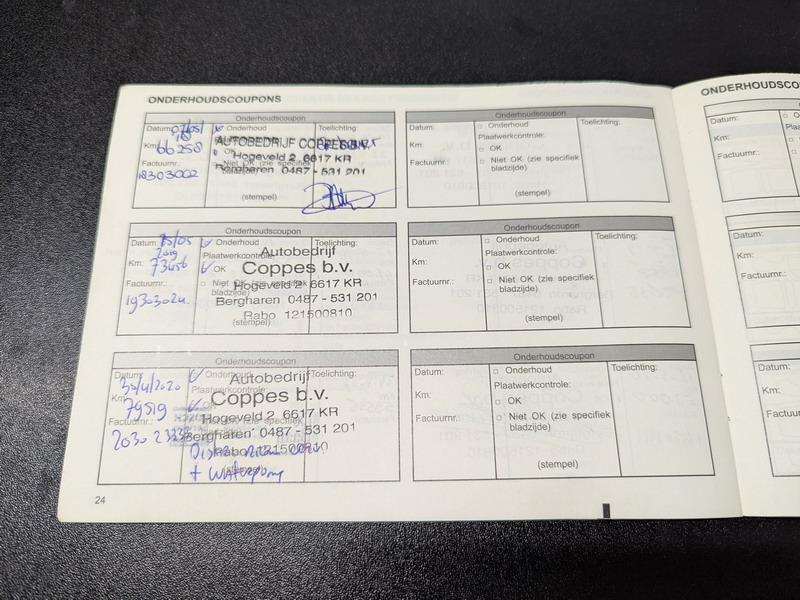 ONDERHOUDSCOUPONS
Onderhoudscoupon
Datum: 07/05/
18
Onderhoud
Toelichting:
Km: 66258
AUTOBEDRIJF COPPES B.V.
OK
Hogeveld 2 6617 KR
Factuurnr.:
Niet OK (zie specifiek
bladzijde)
Bergharen 0487 - 531 201
18303002
(stempel)
Onderhoudscoupon
Datum:
Onderhoud
Toelichting:
Plaatwerkcontrole:
Km:
OK
Factuurnr.:
Niet OK (zie specifiek
bladzijde)
(stempel)
Onderhoudscoupon
Datum: 15/05
2019
Onderhoud
Toelichting:
Autobedrijf
Plaatwerkcontrole:
Km: 73456
OK
Coppes b.v.
Factuurnr.:
Niet OK (zie specifiek
bladzijde)
Hogeveld 2 6617 KR
Bergharen 0487 - 531 201
Rabo 121500810
(stempel)
Onderhoudscoupon
Datum:
Onderhoud
Toelichting:
Plaatwerkcontrole:
Km:
OK
Factuurnr.:
Niet OK (zie specifiek
bladzijde)
(stempel)
Onderhoudscoupon
Datum:
30/4/2020
Onderhoud
Toelichting:
Autobedrijf
Plaatwerkcontrole:
Km: 79519
OK
Coppes b.v.
Hogeveld 2 6617 KR
Factuurnr.:
Bergharen 0487 - 531 201
Rabo 121500810
+ waterpomp
Onderhoudscoupon
Datum:
Onderhoud
Toelichting:
Plaatwerkcontrole:
Km:
OK
Factuurnr.:
Niet OK (zie specifiek
bladzijde)
(stempel)
24
ONDERHOUDSCOU
Datum:
Km:
Factuurnr.:
Datum:
Km:
Factuurnr.:
Datum:
Km:
Factuurnr.: